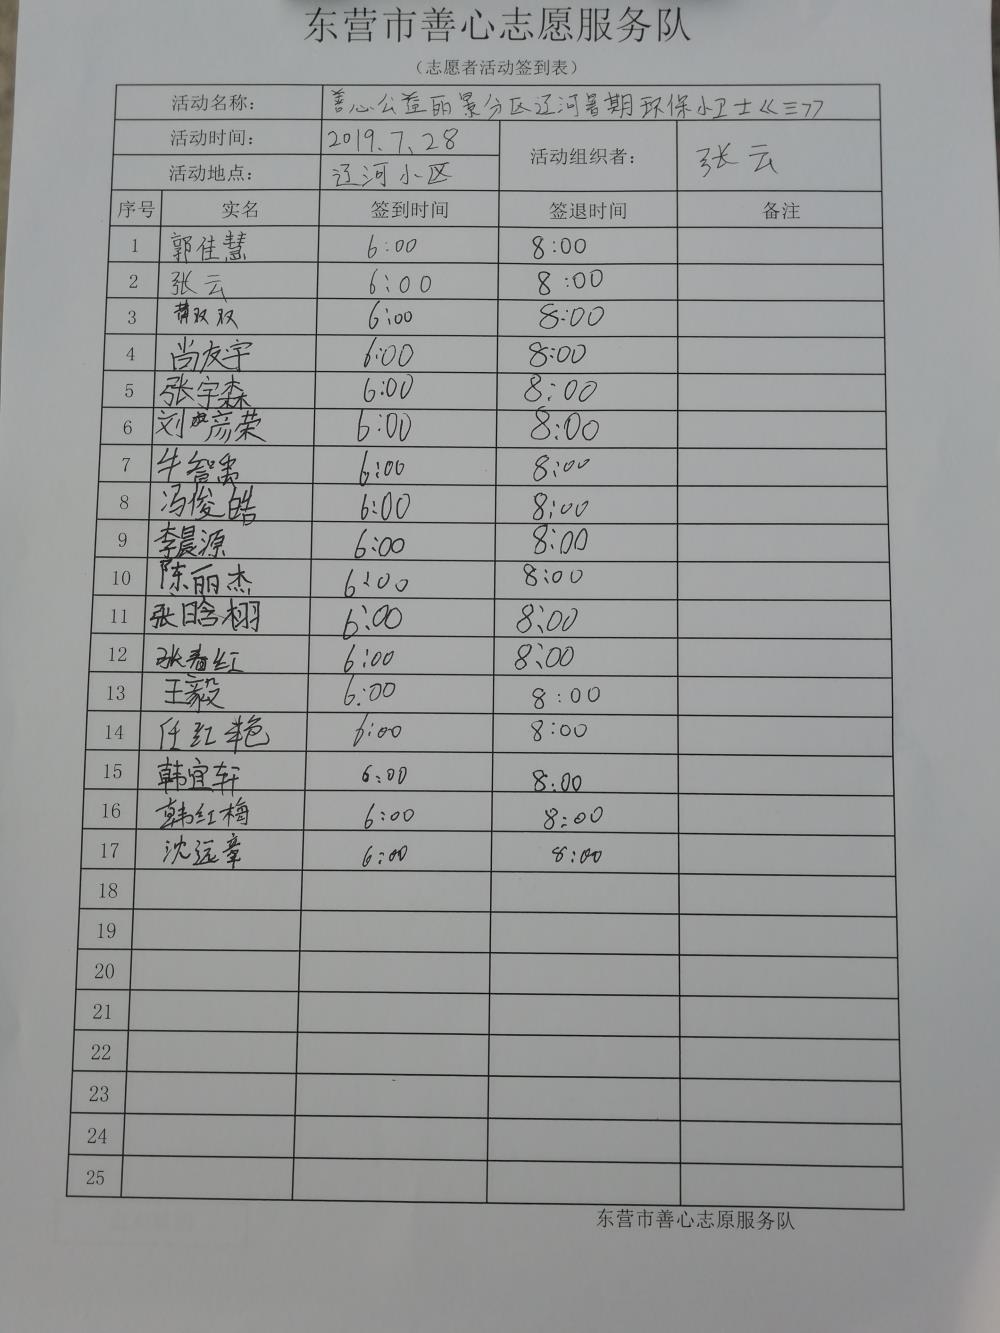 东营市善心志愿服务队
（志愿者活动签到表）
活动名称： 善心公益丽景分区辽河暑期环保小卫士《三》
活动时间： 2019.7、28 活动组织者： 张云
活动地点： 辽河小区
序号 实名 签到时间 签退时间 备注
1 郭佳慧 6:00 8:00
2 张云 6:00 8:00
3 双双 6:00 8:00
4 尚友宇 6:00 8:00
5 张宇森 6:00 8:00
6 刘彦荣 6:00 8:00
7 牛智禹 6:00 8:00
8 冯俊皓 6:00 8:00
9 李晨源 6:00 8:00
10 陈丽杰 6:00 8:00
11 张晗栩 6:00 8:00
12 张春红 6:00 8:00
13 王毅 6:00 8:00
14 任红艳 6:00 8:00
15 韩宜轩 6:00 8:00
16 韩红梅 6:00 8:00
17 沈远章 6:00 8:00
18
19
20
21
22
23
24
25
东营市善心志原服务队